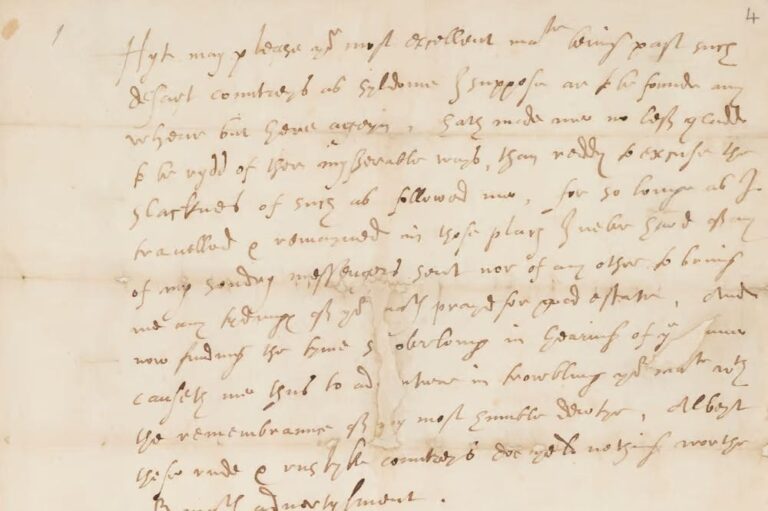 4
Hyt may please yor most excellent matie being past such
desart countreys as syldome I suppose ar to be founde any
wheare but heare ageyn, hath made me no less gladd
to be rydd of them mysserable ways, than reddy to excuse the
slacknes of such as followed me, for so longe as I
travelled & remayned in those plac I never hard of any
of my sondry messengers sent nor of any other to bring
me any tydings of yor most prayed for good estate, And
now finding the tyme overlong in hearing of yt
causeth me thus to in trowbling yor matie wth
the remembrance of my most humble dewtye, Albeyt
these rude & rustyke countreys doe yeld nothing worthe
advertysment.